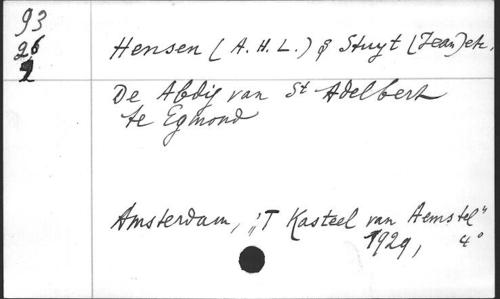 93
26
2
Hensen (A. H. L.) & Stuyt (Jean) etc.
De Abdij van St Adelbert
te Egmond
Amsterdam, "T Kasteel van Aemstel"
1929, 4°